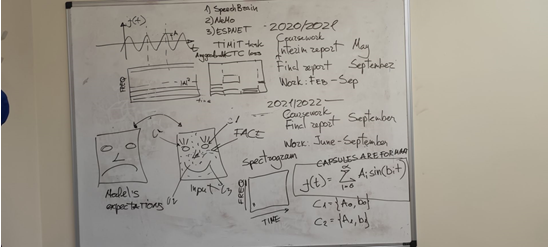 f(t)
1) SpeechBrain
2) NeMo
3) ESPNET
TIMIT task
CTC loss
t
FREQ
2020/2021
Coursework
Interim report May
Final report September
Work: FEB - Sep
2021/2022
Coursework
Final report September
Work: June - September
FACE
Model's
expectations
Input
Spectrogram
FREQ
TIME
CAPSULES ARE FORMAN
f(t) = ∞ Σ i=0 Ai sin(bi t)
C1 = {A0, b0}
C2 = {A1, b1}